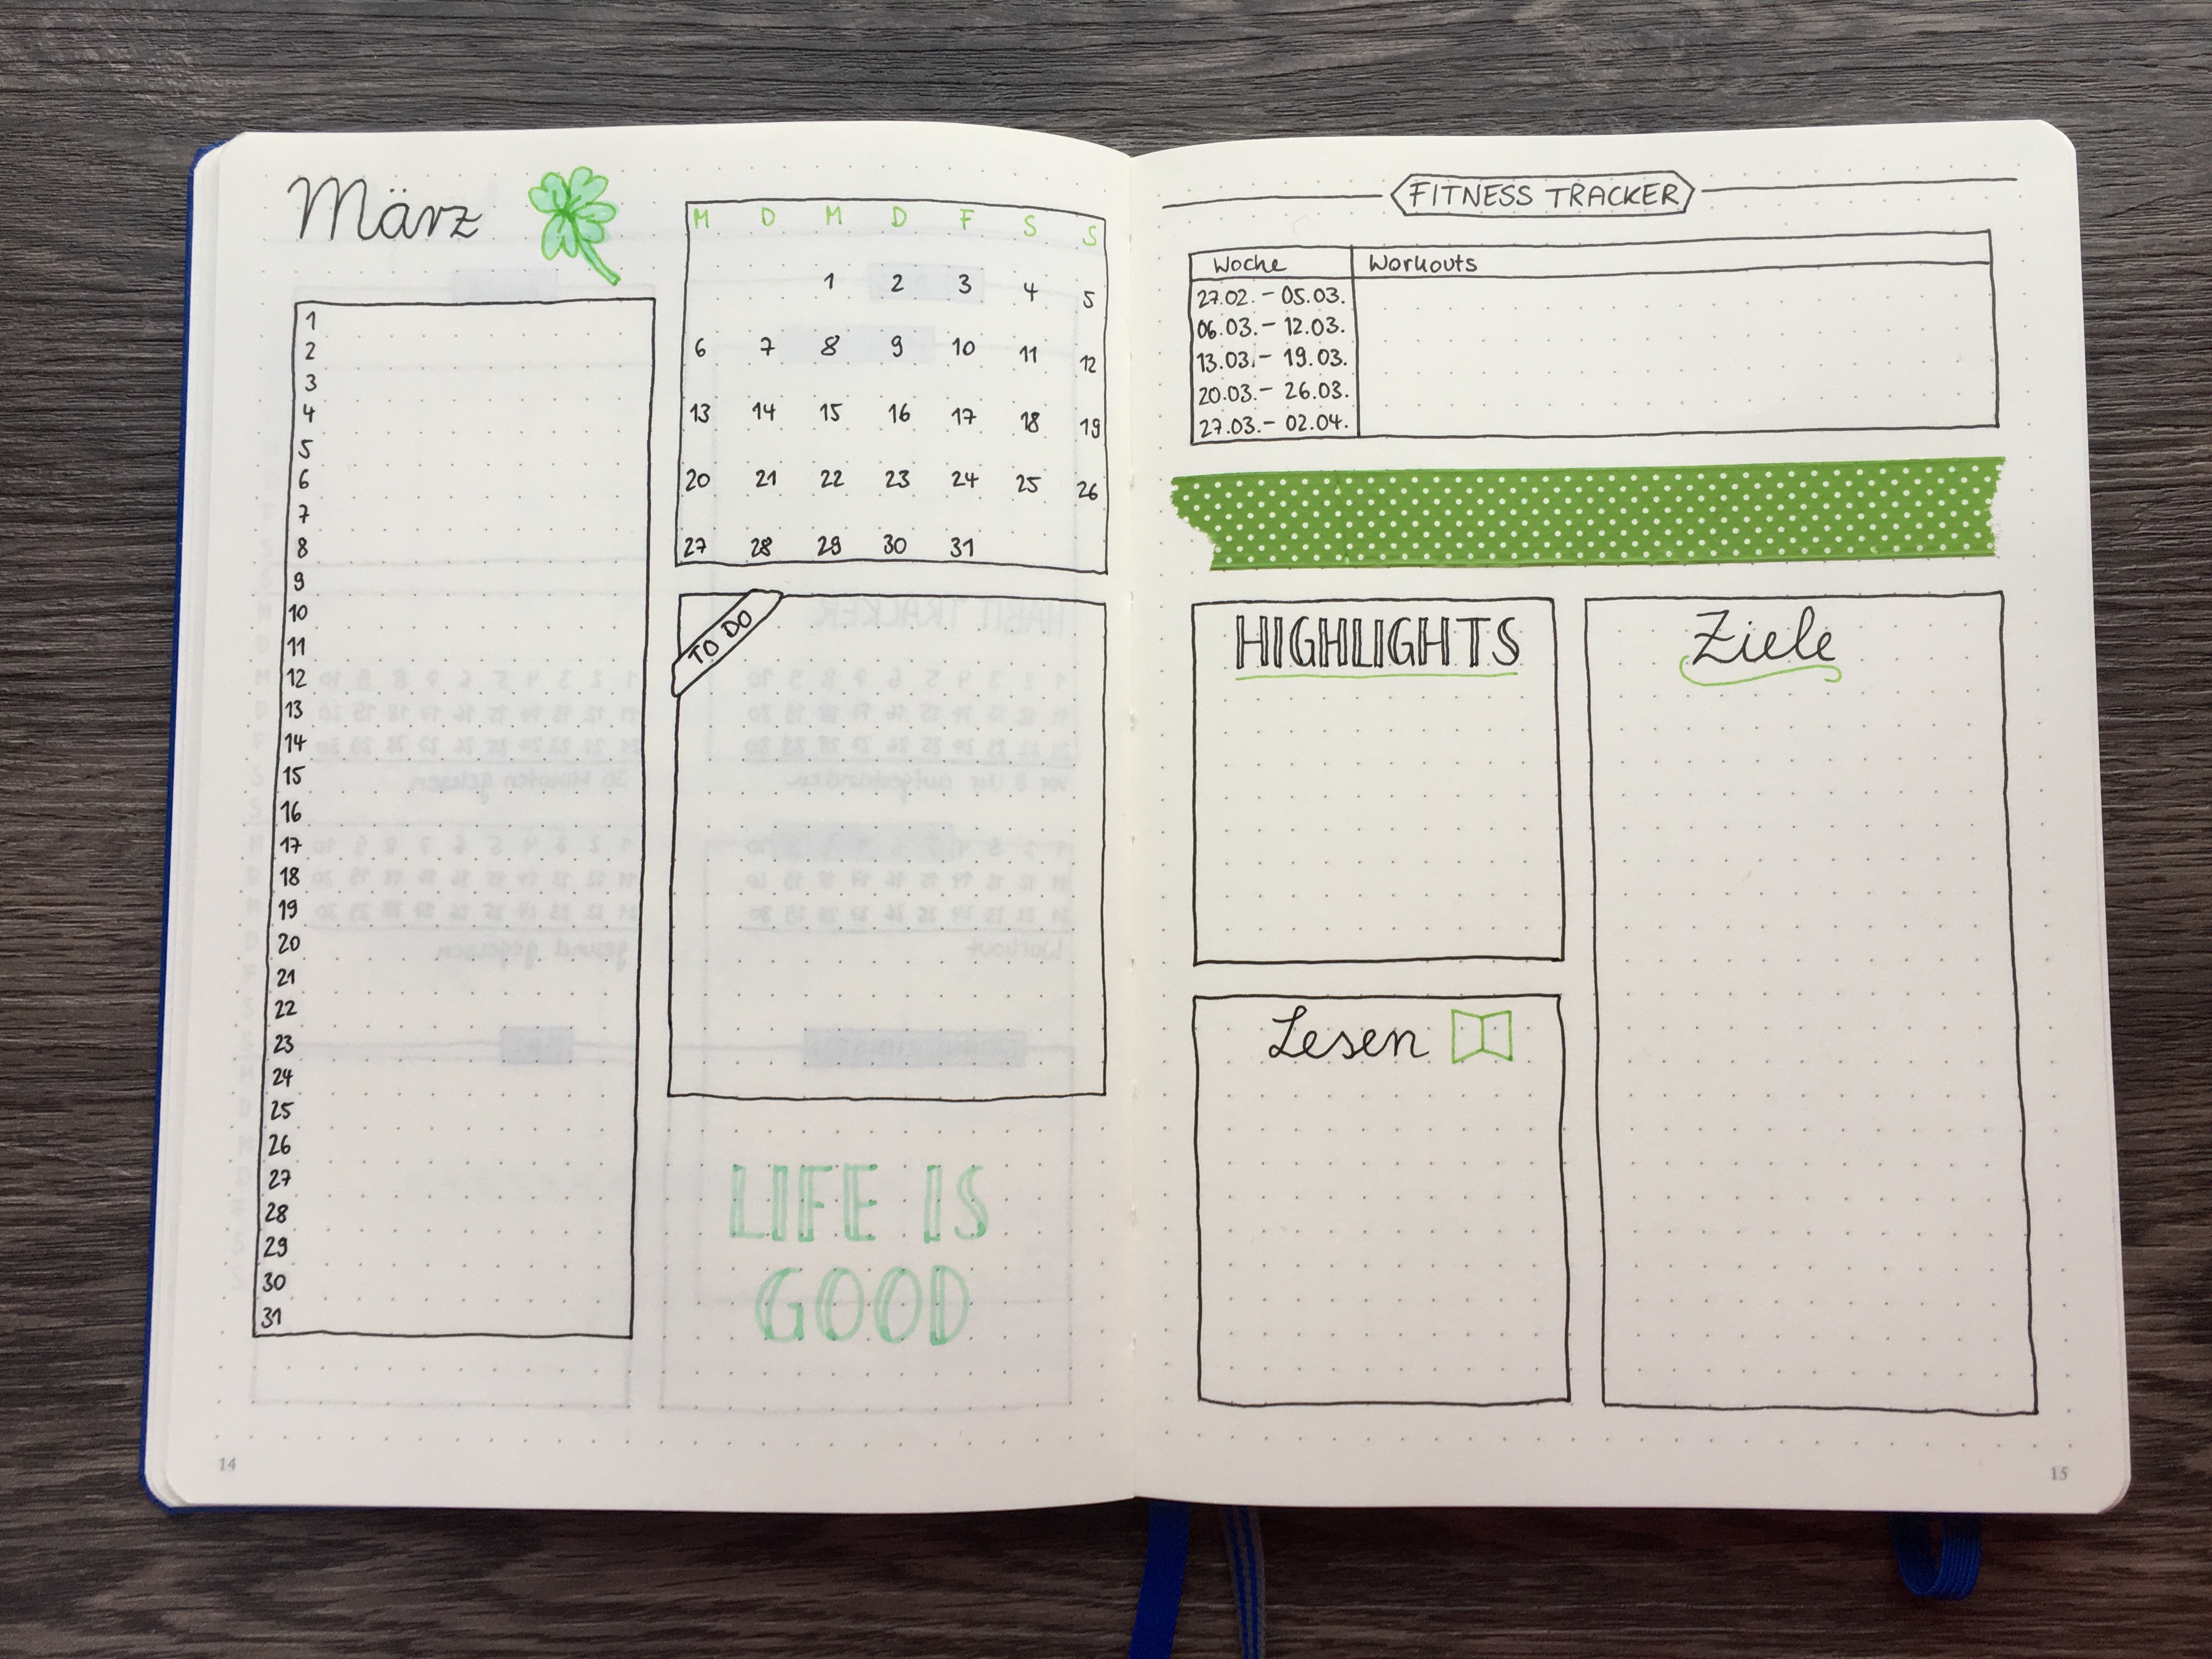 März
1
2
3
4
5
6
7
8
9
10
11
12
13
14
15
16
17
18
19
20
21
22
23
24
25
26
27
28
29
30
31
M D M D F S S
1 2 3 4 5
6 7 8 9 10 11 12
13 14 15 16 17 18 19
20 21 22 23 24 25 26
27 28 29 30 31
TO DO
LIFE IS
GOOD
14
FITNESS TRACKER
Woche Workouts
27.02. - 05.03.
06.03. - 12.03.
13.03. - 19.03.
20.03. - 26.03.
27.03. - 02.04.
HIGHLIGHTS
Ziele
Lesen
15